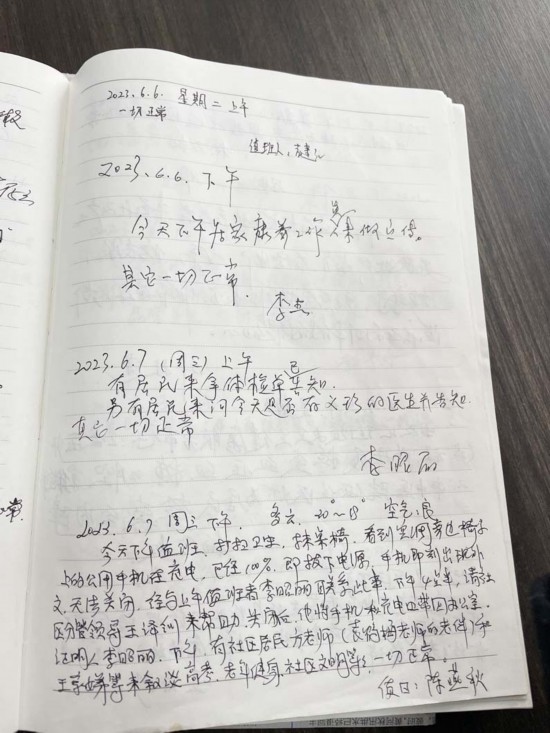 2023.6.6. 星期二 上午
一切正常
值班人:
2023.6.6. 下午
今天下午居家康养工作人员来做宣传。
其它一切正常.
李
2023.6.7 (周三) 上午
有居民来拿体检单已告知.
另有居民来问今天是否有义诊的医生并告知
其它一切正常
李昭丽
2023.6.7 周三 下午. 多云. 30°~18° 空气:良
今天下午值班, 打扫卫生, 抹桌椅. 看到里周旁边椅子
上的公用手机在充电, 已经100%, 即拔下电源, 手机即刻出现外
文, 无法关闭. 经与上午值班者李昭丽联系此事. 下午4点半, 请社
区分管领导王 来帮助, 关闭后, 他将手机和充电器带回办公室.
证明人 李昭丽. 下午, 有社区居民方老师 (袁 老师的老伴) 和
王 等来叙谈高考, 老年健身, 社区文明等, 一切正常.
值日: 陈燕秋